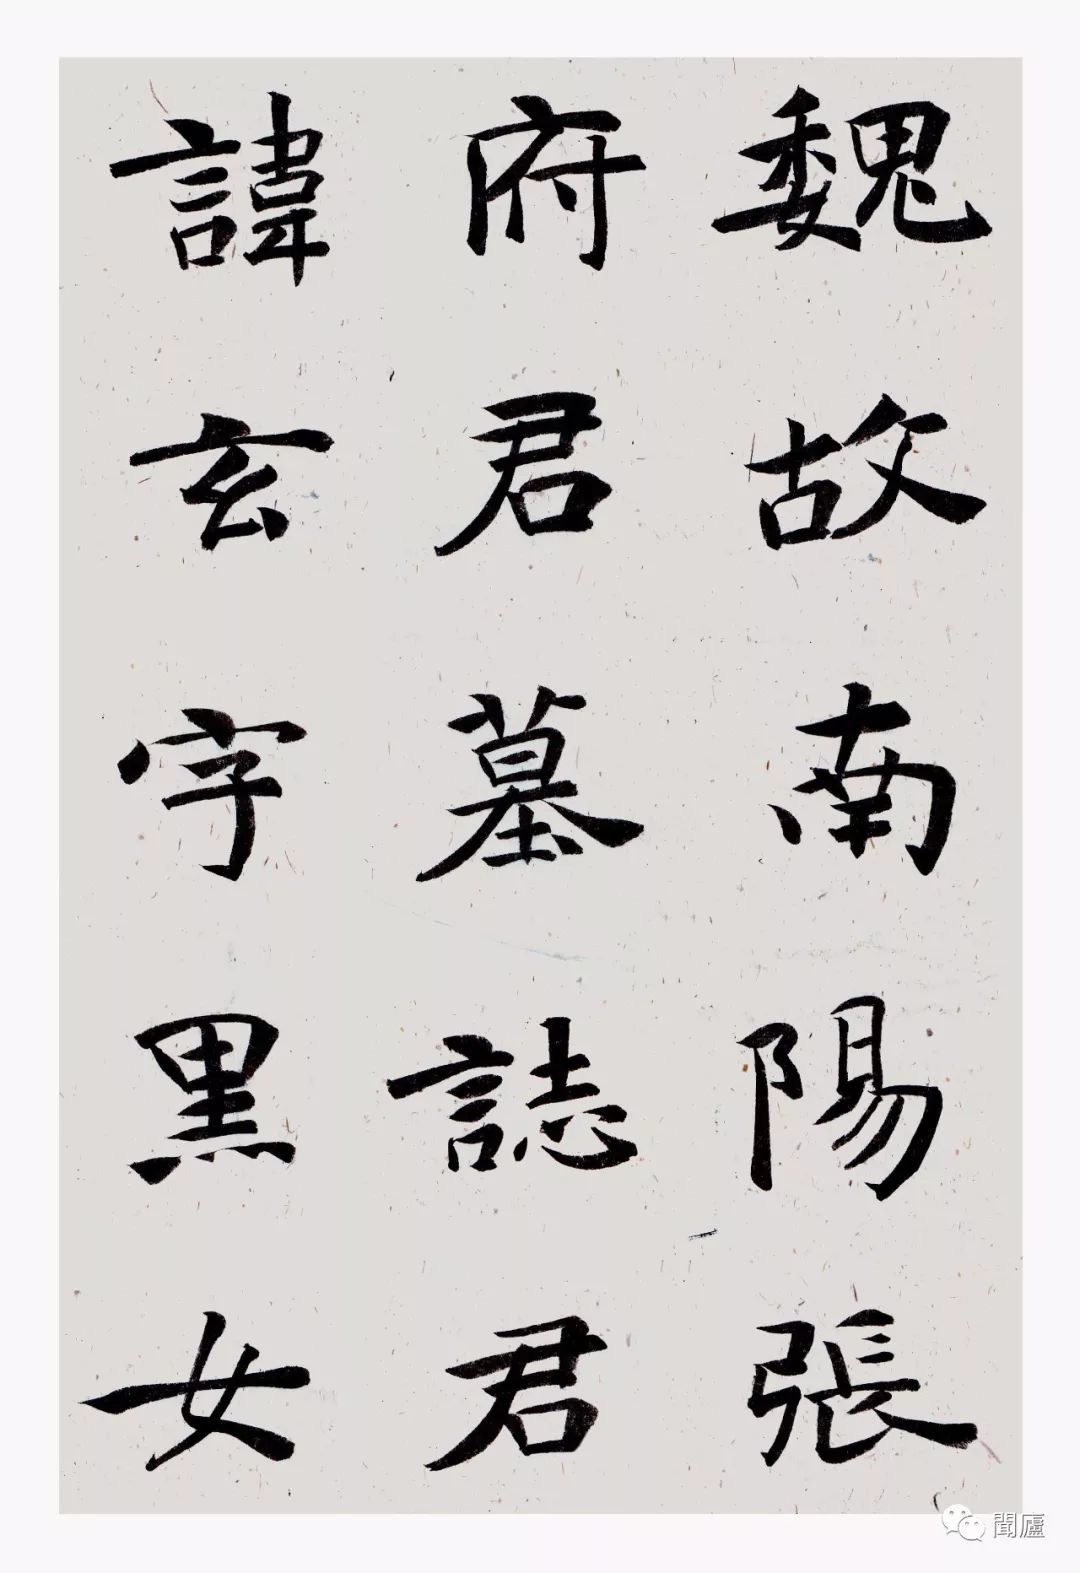 魏故南陽張
府君墓誌君
諱玄字黑女
聞廬